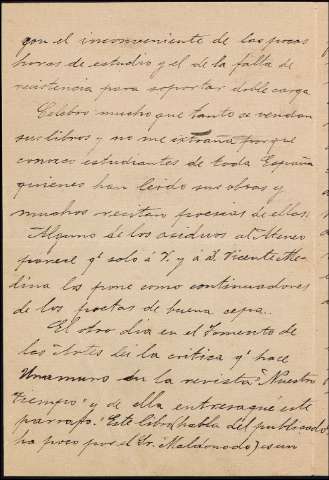 con el inconveniente de las pocas
horas de estudio y el de la falta de
resistencia para soportar doble carga.
Celebro mucho que tanto se vendan
sus libros y no me extraña porque
conozco estudiantes de toda España
quienes han leido sus obras y
muchos recitan poesias de ellas.
Alguno de los asiduos al Ateneo
parece qe solo á V. y á D. Vicente Me-
dina los pone como continuadores
de los poetas de buena cepa.
El otro dia en el Fomento de
las Artes lei la critica qe hace
Unamuno en la revista "Nuestro
Tiempo" y de ella entresaqué este
parrafo: "Este libro (habla del publicado
ha poco por el Sr. Maldonado) es un